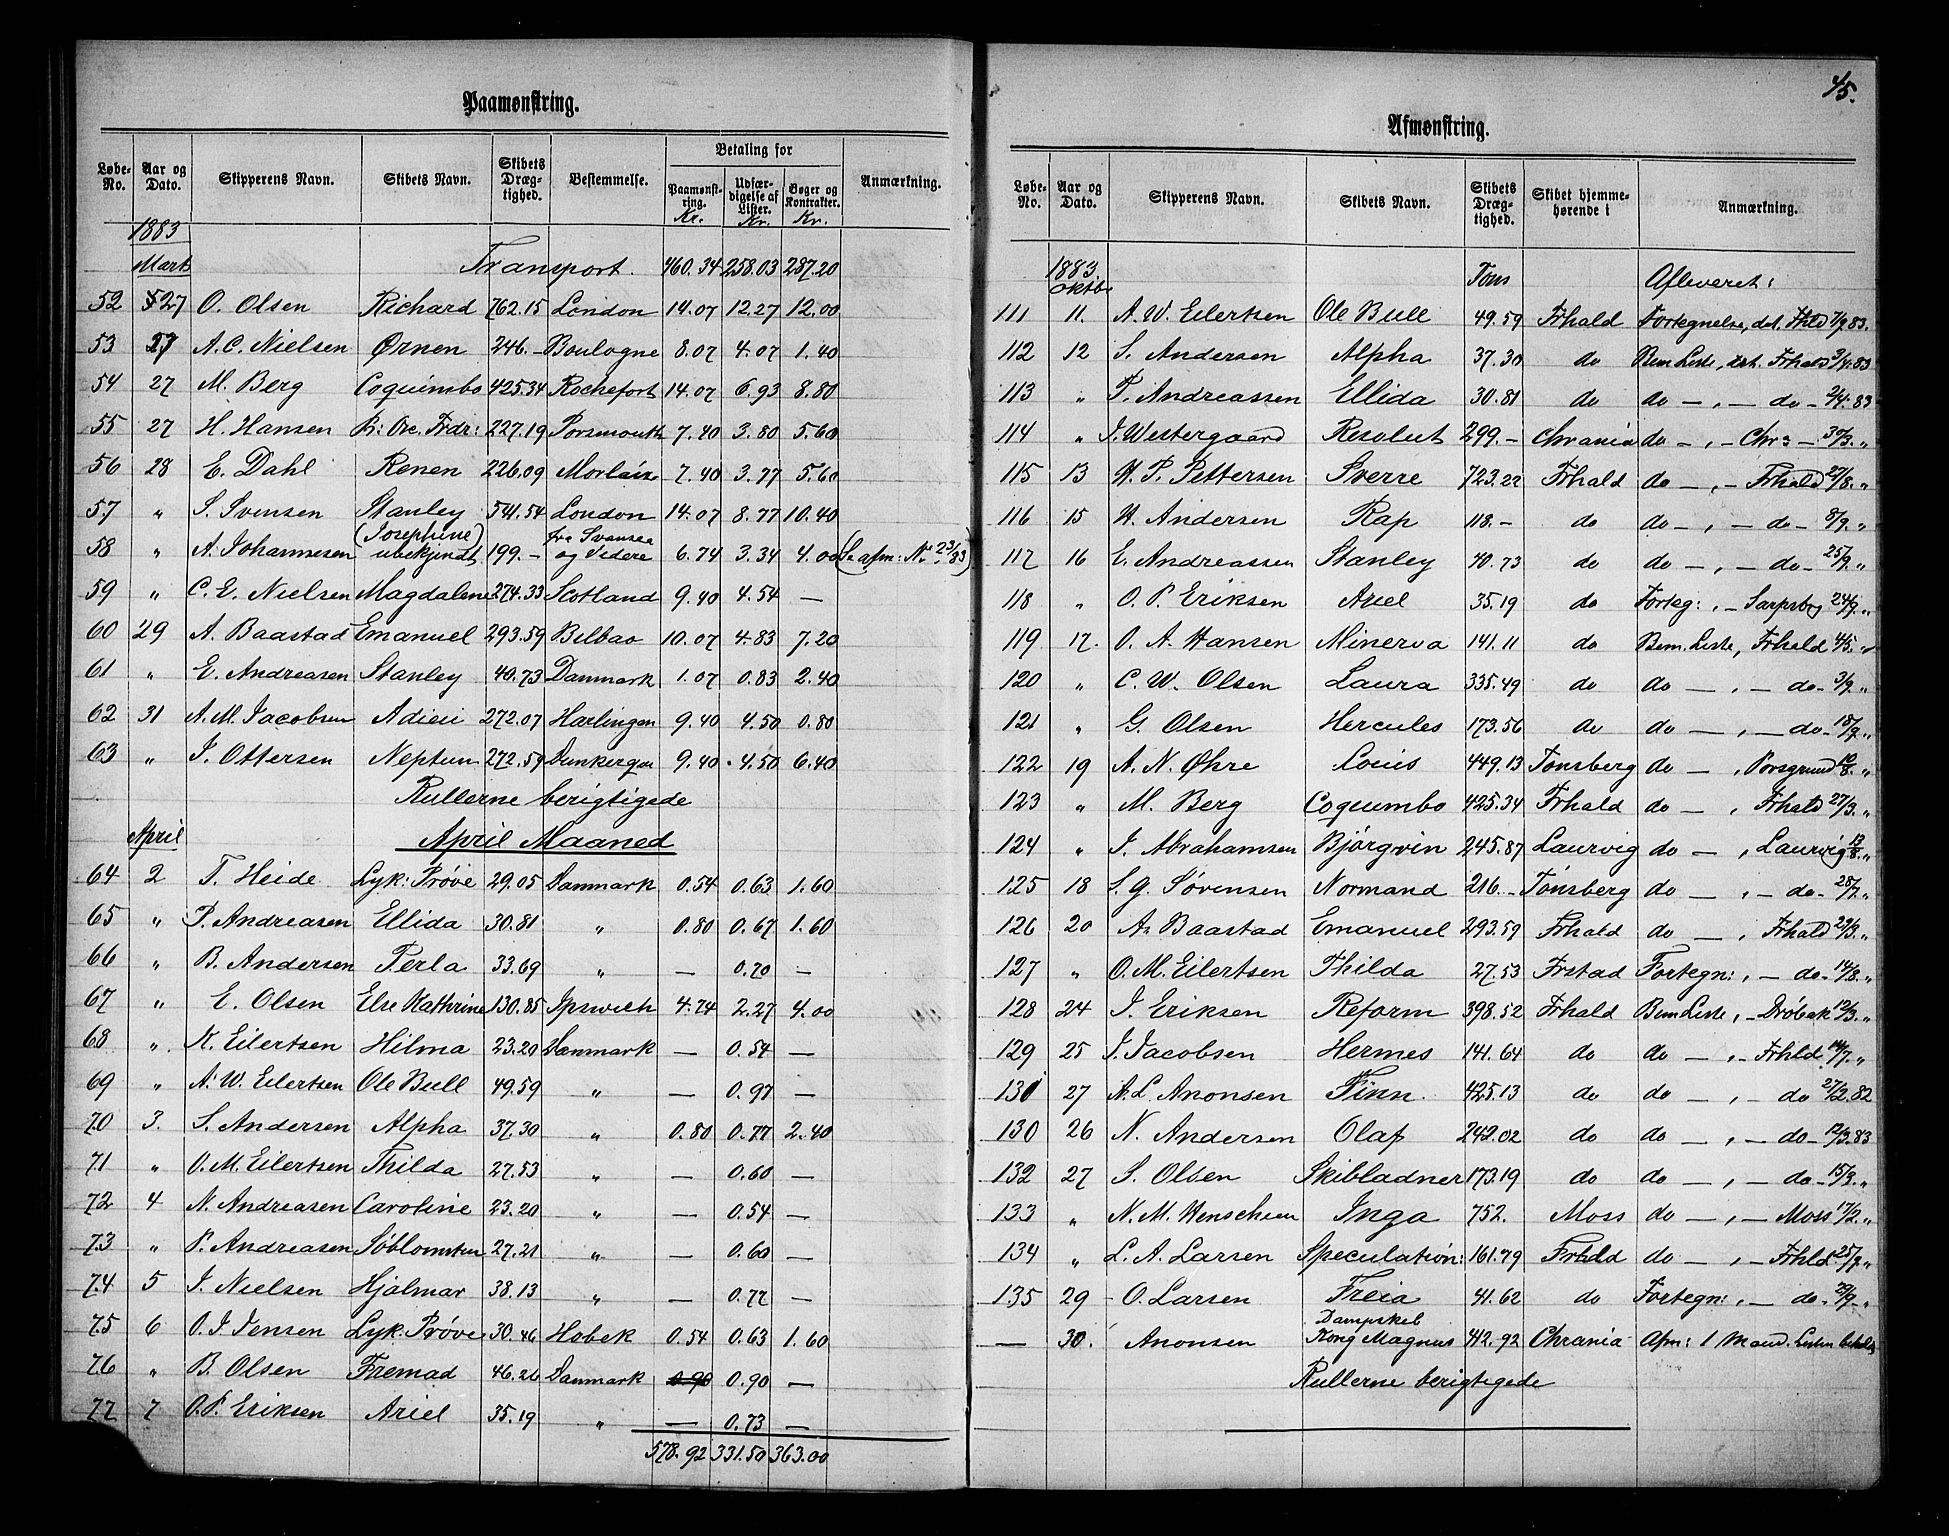 Paamønstring.
Løbe-No. Aar og Dato. Skipperens Navn. Skibets Navn. Skibets Dræg-tighed. Bestemmelse. Betaling for Anmærkning.
Paamønst-ring. Kr. Udfær-digelse af Lister. Kr. Bøger og Kontrakter. Kr.
1883
Marts Transport. 460.34 258.03 287.20
52 27 O. Olsen Richard 762.15 London 14.07 12.27 12.00
53 27 A. C. Nielsen Ørnen 246.- Boulogne 8.07 4.07 1.40
54 27 M. Berg Coquimbo 425.34 Rochefort 14.07 6.93 8.80
55 27 H. Hansen 227.19 Porsmouth 7.40 3.80 5.60
56 28 E. Dahl Renen 226.09 Morlaise 7.40 3.77 5.60
57 " S. Svensen Stanley 541.54 London 14.07 8.77 10.40
58 " A. Johannesen (Josephine) ubekjendt 199.- fra Svansea og videre 6.74 3.34 4.00 (Se afm: No. 23/83)
59 " C. E. Nielsen Magdalene 274.33 Scotland 9.40 4.54 —
60 29 A. Baastad Emanuel 293.59 Bilbao 10.07 4.83 7.20
61 " E. Andreasen Stanley 40.73 Danmark 1.07 0.83 2.40
62 31 A. M. Jacobsen Adieu 272.07 Harlingen 9.40 4.50 0.80
63 " J. Ottersen Neptun 272.59 Dunkerque 9.40 4.50 6.40
Rullerne berigtigede
April April Maaned
64 2 T. Heide Lyk: Prøve 29.05 Danmark 0.54 0.63 1.60
65 " P. Andreasen Ellida 30.81 " 0.80 0.67 1.60
66 " B. Andersen Perla 33.69 " — 0.70 —
67 " E. Olsen Else Kathrine 130.85 Ipswich 4.74 2.27 4.00
68 " K. Eilertsen Hilma 23.20 Danmark — 0.54 —
69 " A. W. Eilertsen Ole Bull 49.59 " — 0.97 —
70 3. S. Andersen Alpha 37.30 " 0.80 0.77 2.40
71 " O. M. Eilertsen Thilda 27.53 " — 0.60 —
72 4 N. Andreasen Caroline 23.20 " — 0.54 —
73 " P. Andreasen Søblomsten 27.21 " — 0.60 —
74 5 J. Nielsen Hjalmar 38.13 " — 0.77 —
75 6 O. J. Jensen Lyk: Prøve 30.46 Hobek 0.54 0.63 1.60
76 " B. Olsen Fremad 46.26 Danmark 0.90 0.90 —
77 7 O. P. Eriksen Ariel 35.19 " — 0.73 —
578.92 331.50 363.00
45.
Afmønstring.
Løbe-No. Aar og Dato. Skipperens Navn. Skibets Navn. Skibets Dræg-tighed. Skibet hjemme-hørende i Anmærkning.
1883. Oktbr Tons Afleveret:
111 11. A. W. Eilertsen Ole Bull 49.59 Frhald Fortegnelse, dat. Fhld 7/9 83.
112 12 S. Andersen Alpha 37.30 do Bem. Liste, dat. Frhald 3/4. 83
113 " P. Andreassen Ellida 30.81 do do — " — do - 2/4. 83
114 " J. Westergaard Resolut 299.- Chrania do — " — Chr: - 30/3. "
115 13 H. P. Pettersen Sverre 723.22 Frhald do — " — Frhald 27/8. "
116 15 W. Andersen Rap 118.- do do — " — do - 8/9. "
117 16 E. Andreassen Stanley 40.73 do do — " — do - 25/9. "
118 " O. P. Eriksen Ariel 35.19 do Forteg: " - Sarpsbg 24/9. "
119 17. O. A. Hansen Minerva 141.11 do Bem. Liste, Frhald 4/5. "
120 " C. W. Olsen Laura 335.49 do do — " — do - 3/9. "
121 " G. Olsen Hercules 173.56 do do — " — do - 18/9. "
122 19 A. N. Øhre Louis 449.13 Tønsberg do — " Porsgrund 10/8. "
123 " M. Berg Coquimbo 425.34 Frhald do — " Frhald 27/3. "
124 " J. Abrahamsen Bjørgvin 245.87 Laurvig do — " Laurvig 13/8. "
125 18 S. G. Sørensen Normand 216.- Tønsberg do — " — do - 28/7. "
126 20 A. Baastad Emanuel 293.59 Frhald do — " Frhald 29/3. "
127 " O. M. Eilertsen Thilda 27.53 Frstad Fortegn: " — do - 14/8. "
128 24 J. Eriksen Reform 398.52 Frhald Bem Liste, - Drøbak 12/3. "
129 25 J. Jacobsen Hermes 141.64 do do — " - Frhld 14/7. "
131 27 A. L. Anonsen Finn 425.13 do do — " — do 27/2. 82
130 26 N. Andersen Olaf 242.02 do do — " — do - 12/3. 83
132 27 S. Olsen Skibladner 173.19 do do — " — do - 15/3. "
133 " N. M. Inga 752. Moss do — " — Moss 17/2. "
134 " L. A. Larsen Speculation: 161.79 Frhld do — " — Frhld 25/9. "
135 29 - O. Larsen Freia 41.62 do Fortegn: " — do - 29/9. "
— 30. Anonsen Dampskib Kong Magnus 412.92 Chrania Afm: 1 Mand. Listen
Rullerne berigtigede